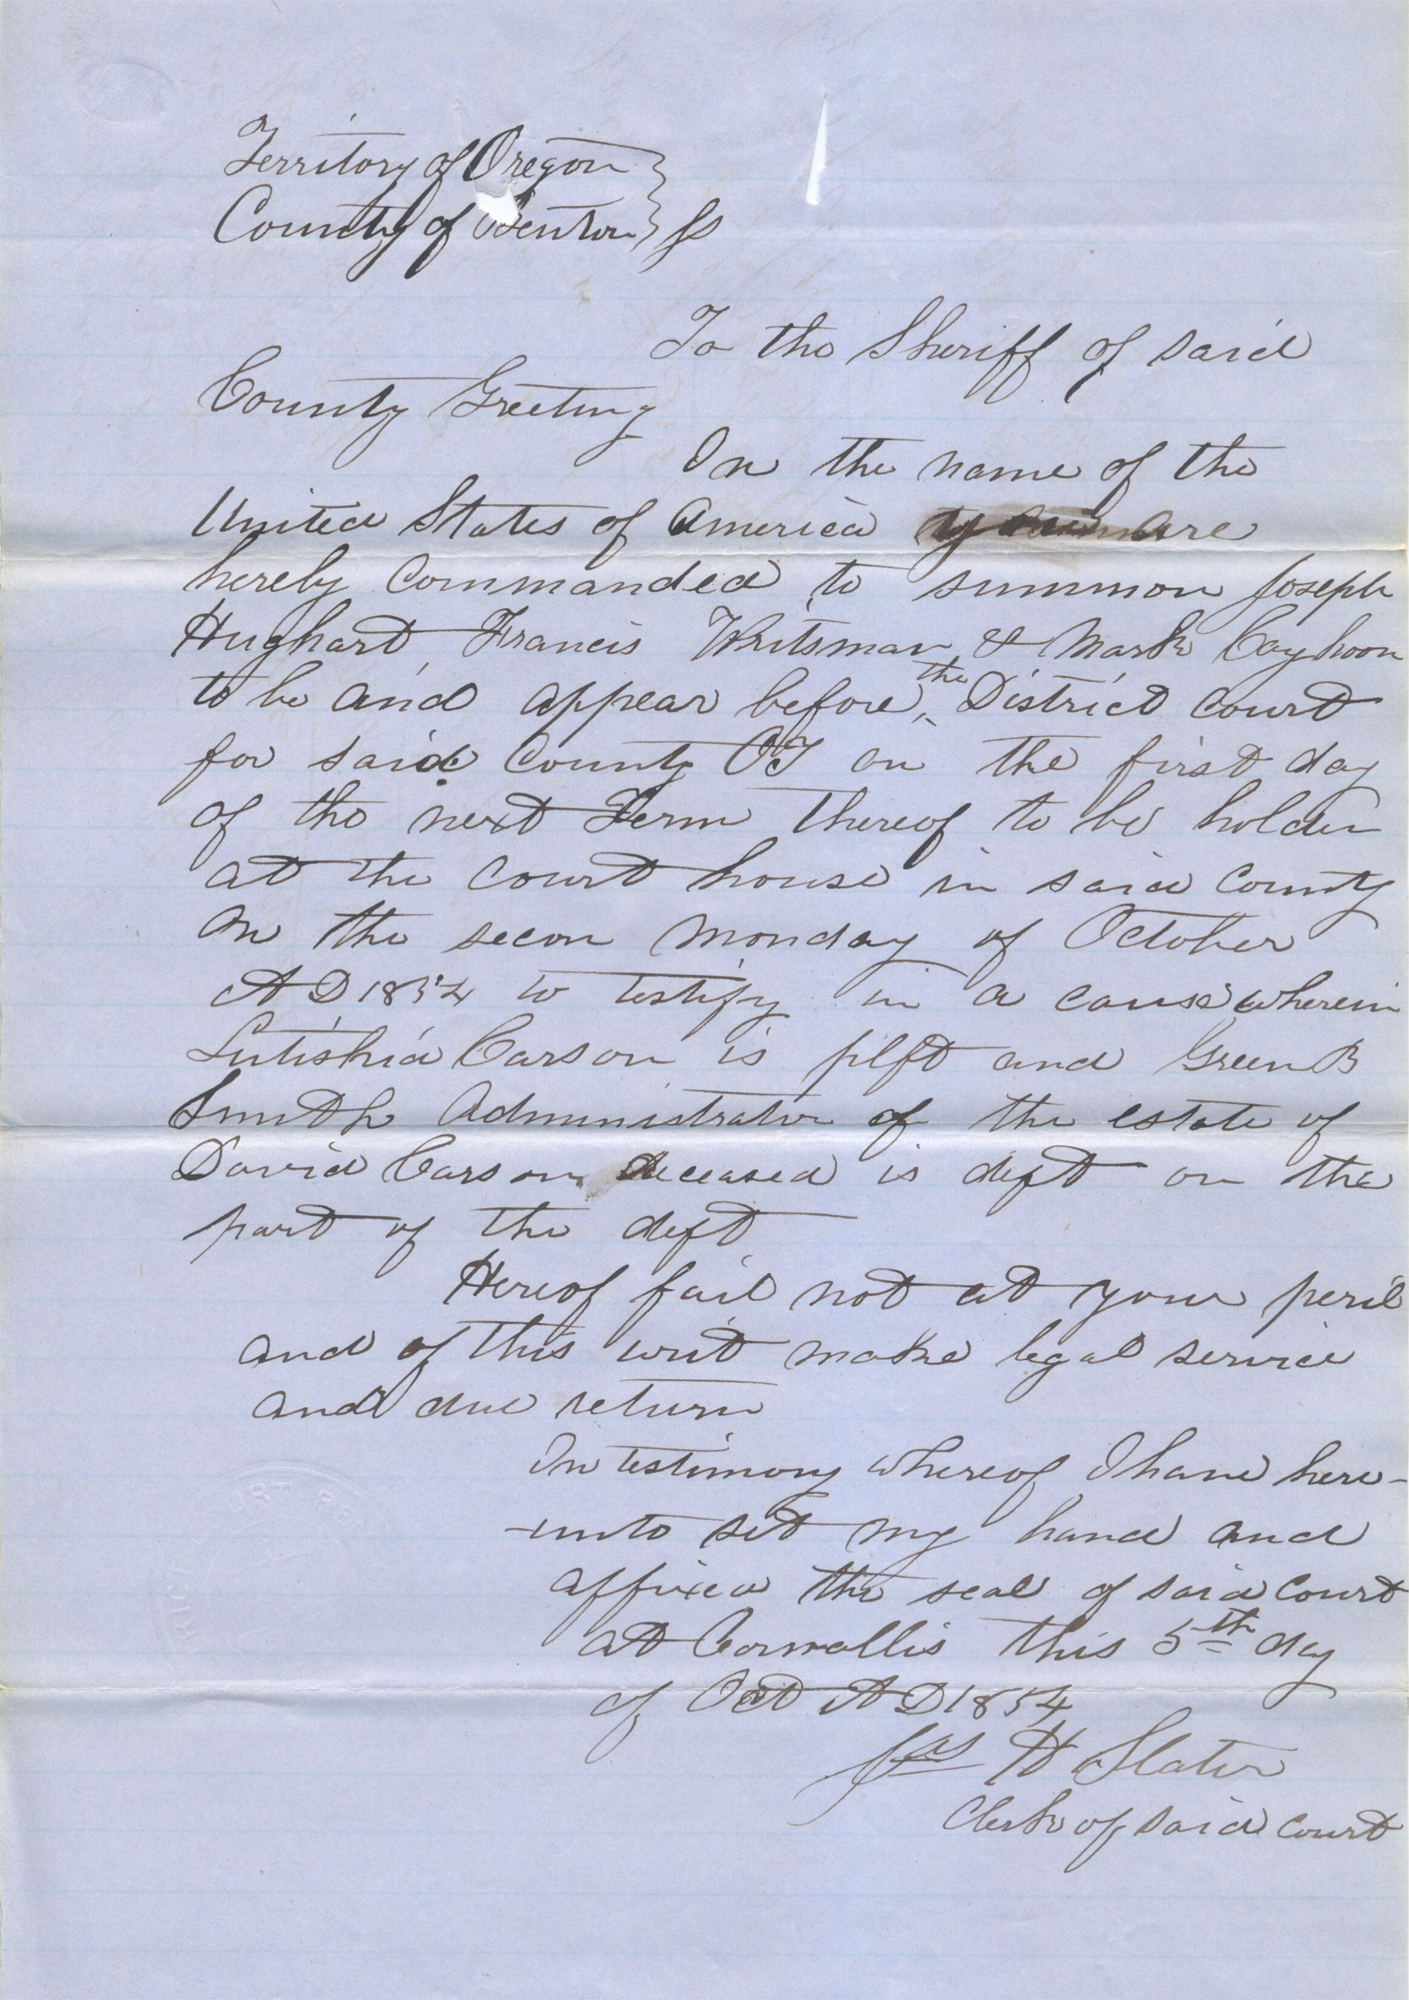 Territory of Oregon
County of Benton } ss
To the Sheriff of said
County Greeting
In the name of the
United States of America you are
hereby Commanded to summon Joseph
Hughart, Francis Writsman & Mark Cayhoon
to be and appear before the District Court
for said County OT on the first day
of the next Term thereof to be holden
at the Court house in said County
on the secon Monday of October
A D 1854 to testify in a cause wherein
Lutishia Carson is plft and Green B
Smith Administrator of the estate of
David Carson deceased is deft on the
part of the deft
Hereof fail not at your peril
and of this writ make legal service
and due return
In testimony whereof I have here-
-unto set my hand and
affixed the seal of said Court
at Corvallis this 5th day
of Oct A D 1854
Jas H Slater
Clerk of said Court